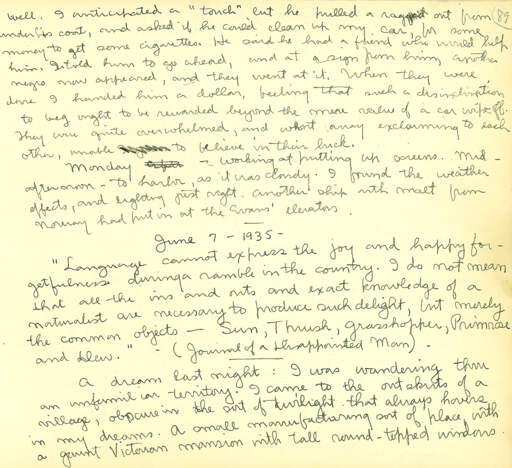 well. I anticipated a "touch" but he pulled a rag out from 89
under his coat, and asked if he could clean up my car, for some
money to get some cigarettes. He said he had a friend who would help
him. I told him to go ahead, and at a sign from him, another
negro now appeared, and they went at it. When they were
done I handed him a dollar, feeling that such a disinclination
to beg ought to be rewarded beyond the mere value of a car wipe-off.
They were quite overwhelmed, and went away exclaiming to each
other, unable to believe in their luck.
Monday - working at putting up screens. Mid-
afternoon - to harbor, as it was cloudy. I found the weather
effects, and lighting just right. Another ship with malt from
Norway had put in at the Evans' elevators.
June 7 - 1935 -
"Language cannot express the joy and happy for-
getfulness during a ramble in the country. I do not mean
that all the ins and outs and exact knowledge of a
naturalist are necessary to produce such delight, but merely
the common objects — Sun, Thrush, grasshopper, Primrose
and dew." - (Journal of a Disappointed Man) -
A dream last night: I was wandering thru
an unfamiliar territory. I came to the outskirts of a
village, obscure in the sort of twilight that always hovers
in my dreams. A small manufacturing sort of place, with
a gaunt Victorian mansion with tall round-topped windows.